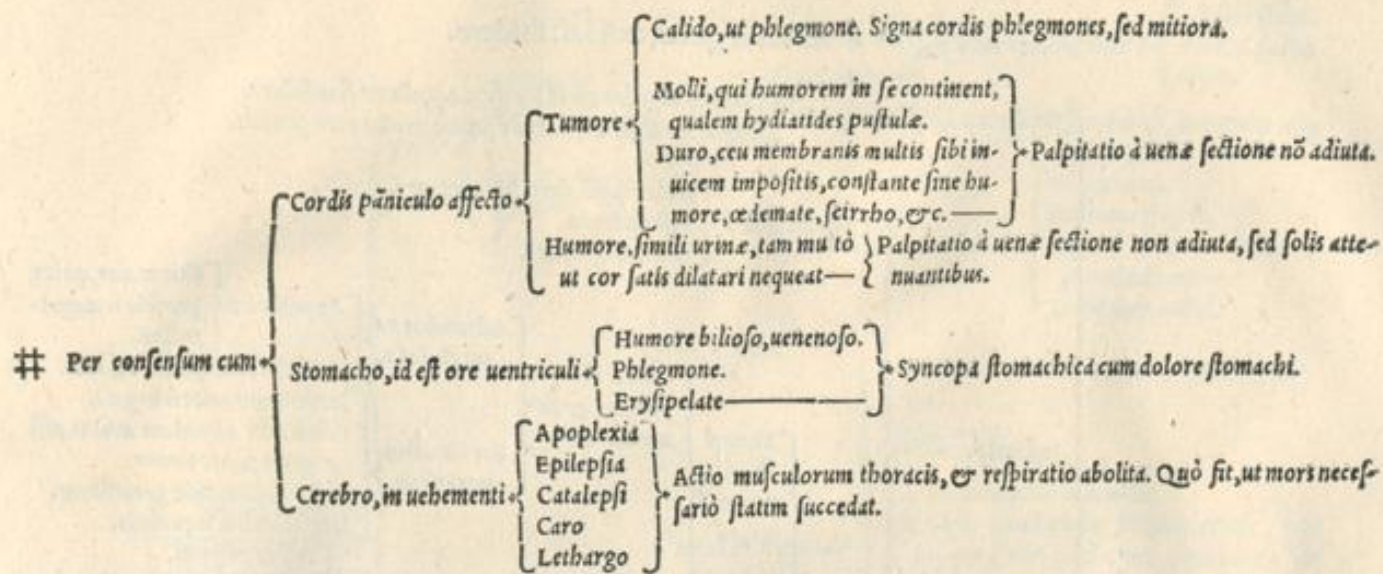 Calido, ut phlegmone. Signa cordis phlegmones, ſed mitiora.
Molli, qui humorem in ſe continent,
qualem hydatides puſtulæ.
Tumore
Duro, ceu membranis multis ſibi in-
uicem impoſitis, conſtante ſine hu-
more, œdemate, ſcirrho, &c.
Palpitatio à uenæ ſectione nõ adiuta.
Cordis pãniculo affecto
Humore. ſimili urinæ, tam mu tò
ut cor ſatis dilatari nequeat
Palpitatio à uenæ ſectione non adiuta, ſed ſolis atte-
nuantibus.
# Per conſenſum cum
Stomacho, id eſt ore uentriculi
Humore bilioſo, uenenoſo.
Phlegmone.
Eryſipelate
Syncopa ſtomachica cum dolore ſtomachi.
Cerebro, in uehementi
Apoplexia
Epilepſia
Catalepſi
Caro
Lethargo
Actio muſculorum thoracis, & reſpiratio abolita. Quò fit, ut mors neceſ-
ſariò ſtatim ſuccedat.